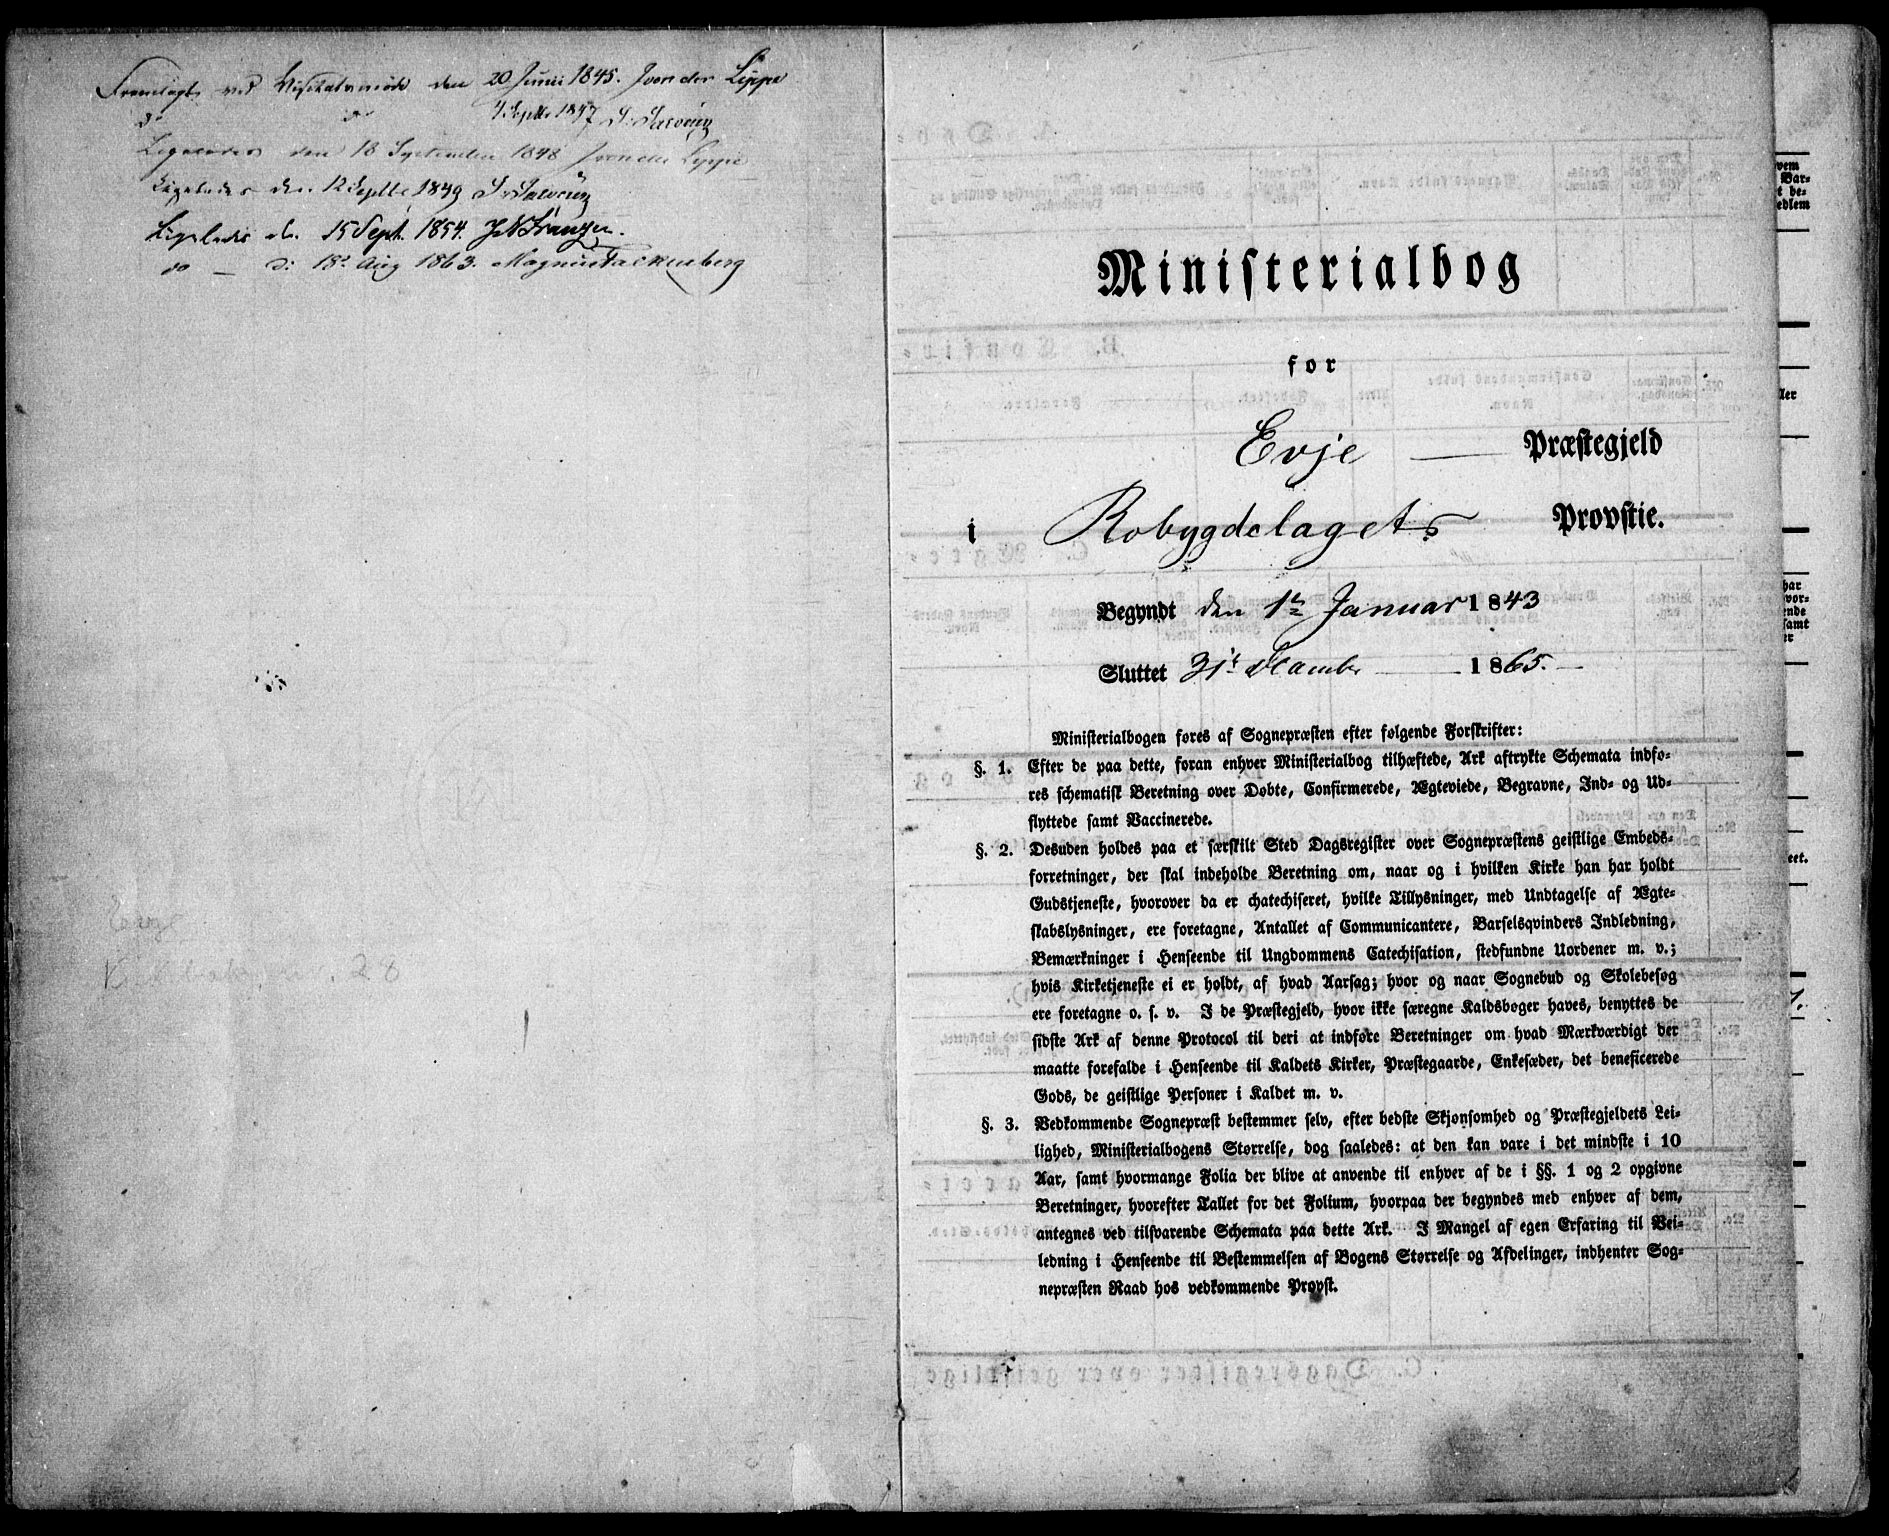 Fremlagt ved Visitatsmøde den 20 Junii 1845. J von der Lippe
do do 4 Septbr 1847 S. Sæveriin
Ligeledes den 18 September 1848 J von der Lippe
Ligeledes den 12 Septbr 1849
Ligeledes d. 15 Sept. 1854. JN Franzen.
do — d: 18de Aug 1863. Magnus Fackenberg
Evje
Kirkebog nr. 28
Ministerialbog
for
Evje — Præstegjeld
i Robygdelagets Provstie.
Begyndt den 1te Januar 1843
Sluttet 31te December — 1865. —
Ministerialbogen føres af Sognepræsten efter følgende Forskrifter:
§. 1. Efter de paa dette, foran enhver Ministerialbog tilhæftede, Ark aftrykte Schemata indfø-
res schematisk Beretning over Døbte, Confirmerede, Ægteviede, Begravne, Ind- og Ud-
flyttede samt Vaccinerede.
§. 2. Desuden holdes paa et særskilt Sted Dagsregister over Sognepræstens geistlige Embeds-
forretninger, der skal indeholde Beretning om, naar og i hvilken Kirke han har holdt
Gudstjeneste, hvorover da er chatechiseret, hvilke Tillysninger, med Undtagelse af Ægte-
skabslysninger, ere foretagne, Antallet af Communicantere, Barselqvinders Indledning,
Bemærkninger i Henseende til Ungdommens Catechisation, stedfundne Uordener m. v.;
hvis Kirketjeneste ei er holdt, af hvad Aarsag; hvor og naar Sognebud og Skolebesøg
ere foretagne o. s. v. I de Præstegjeld, hvor ikke særegne Kaldsbøger haves, benyttes de
sidste Ark af denne Protocol til deri at indføre Beretninger om hvad Mærkværdigt der
maatte forefalde i Henseende til Kaldets Kirker, Præstegaarde, Enkesæder, det beneficerede
Gods, de geistlige Personer i Kaldet m. v.
§. 3. Vedkommende Sognepræst bestemmer selv, efter bedste Skjønsomhed og Præstegjeldets Lei-
lighed, Ministerialbogens Størrelse, dog saaledes: at den kan vare i det mindste i 10
Aar, samt hvormange Folia der blive at anvende til enhver af de i §§. 1 og 2 opgivne
Beretninger, hvorefter Tallet for det Folium, hvorpaa der begyndes med enhver af dem,
antegnes ved tilsvarende Schemata paa dette Ark. I Mangel af egen Erfaring til Vei-
ledning i Henseende til Bestemmelsen af Bogens Størrelse og Afdelinger, indhenter Sog-
nepræsten Raad hos vedkommende Provst.